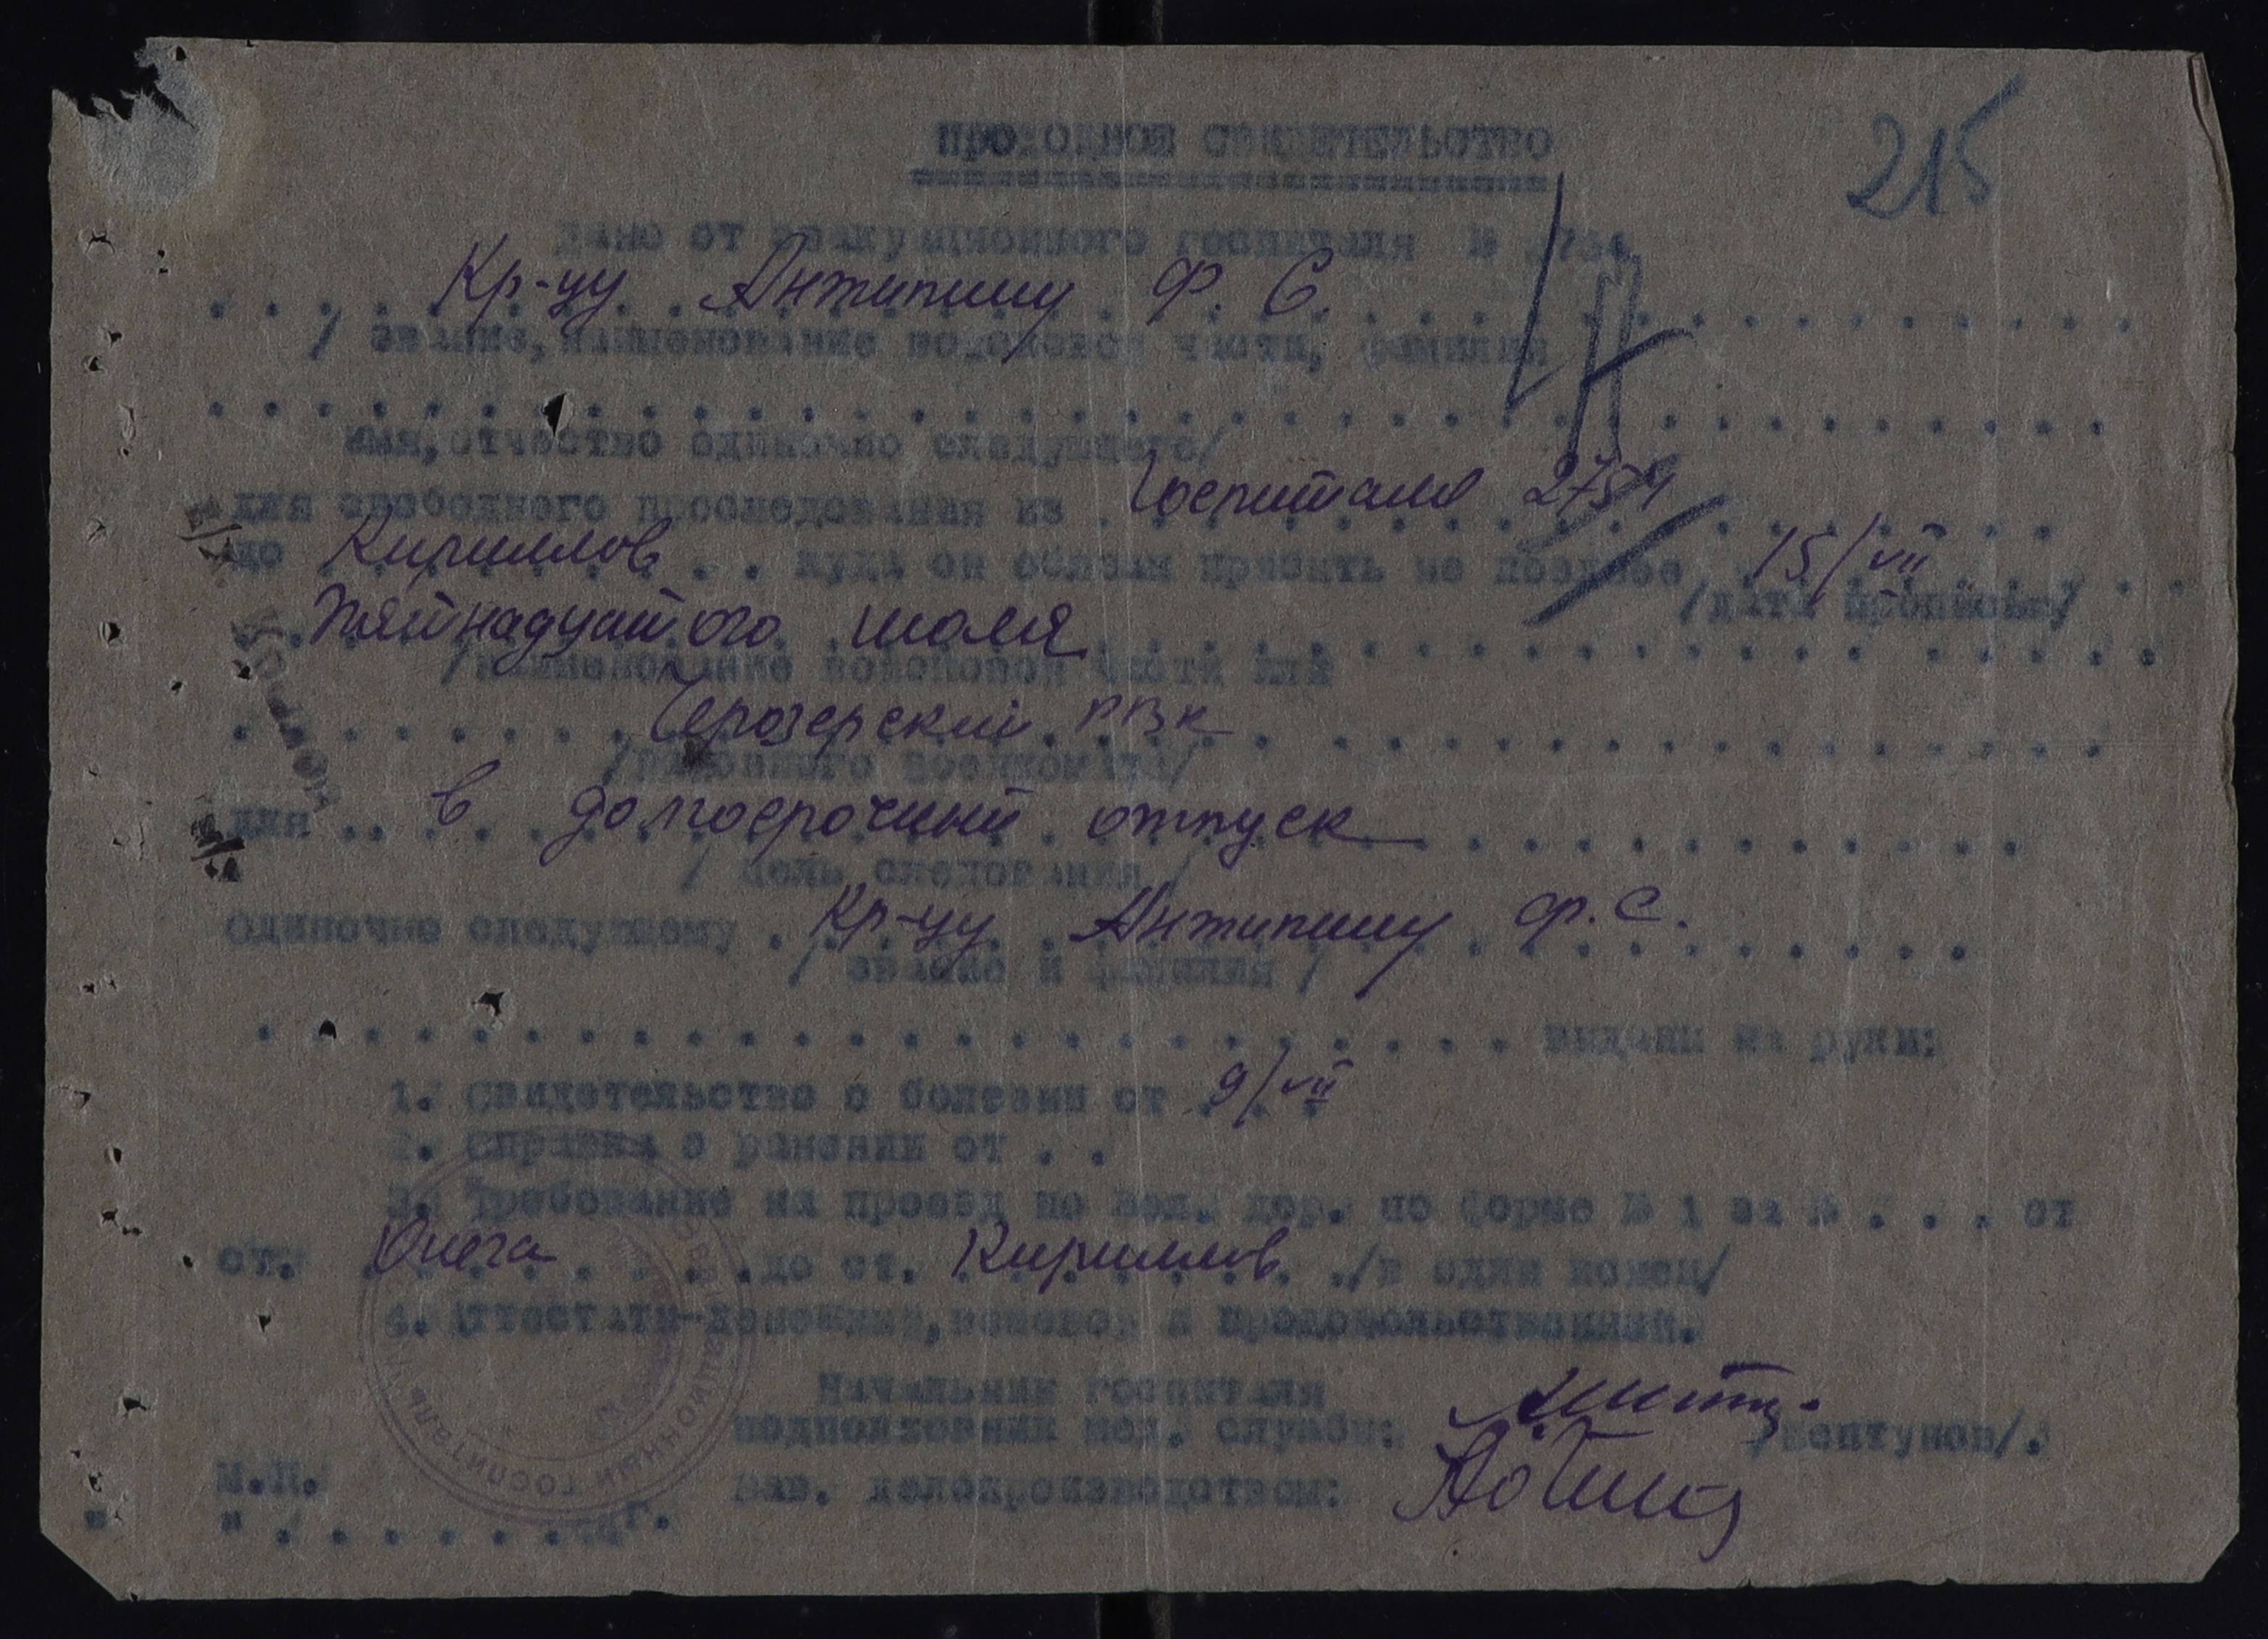 215
ПРОХОДНОЕ СВИДЕТЕЛЬСТВО
дано от эвакуационного госпиталя № 2754
Кр-цу Антипину Ф. С.
/ звание, наименование войсковой части, фамилия
имя, отчество одиночно следующего/
для свободного проследования из Госпиталя 2754
до Кириллов . . куда он обязан прибыть не позднее 15/VII
/дата прописью/
Пятнадцатого июля
/наименование войсковой части или
Черозерский РВК
/районного военкомата/
для . . в долгосрочный отпуск
/ цель следования /
Одиночно следующему . Кр-цу Антипину Ф. С.
/ звание и фамилия /
выданы на руки:
1. Свидетельство о болезни от 9/VII
2. Справка о ранении от . .
3. Требование на проезд по жел. дор. по форме № 1 за № . . . от
ст. Онега до ст. Кириллов ./в один конец/
4. Аттестаты-денежный, вещевой и продовольственный.
Начальник госпиталя
подполковник мед. службы: /Желтунов/.
М.П. Зав. делопроизводством:
" " . . . . . . . г.
ЭВАКУАЦИОННЫЙ ГОСПИТАЛЬ